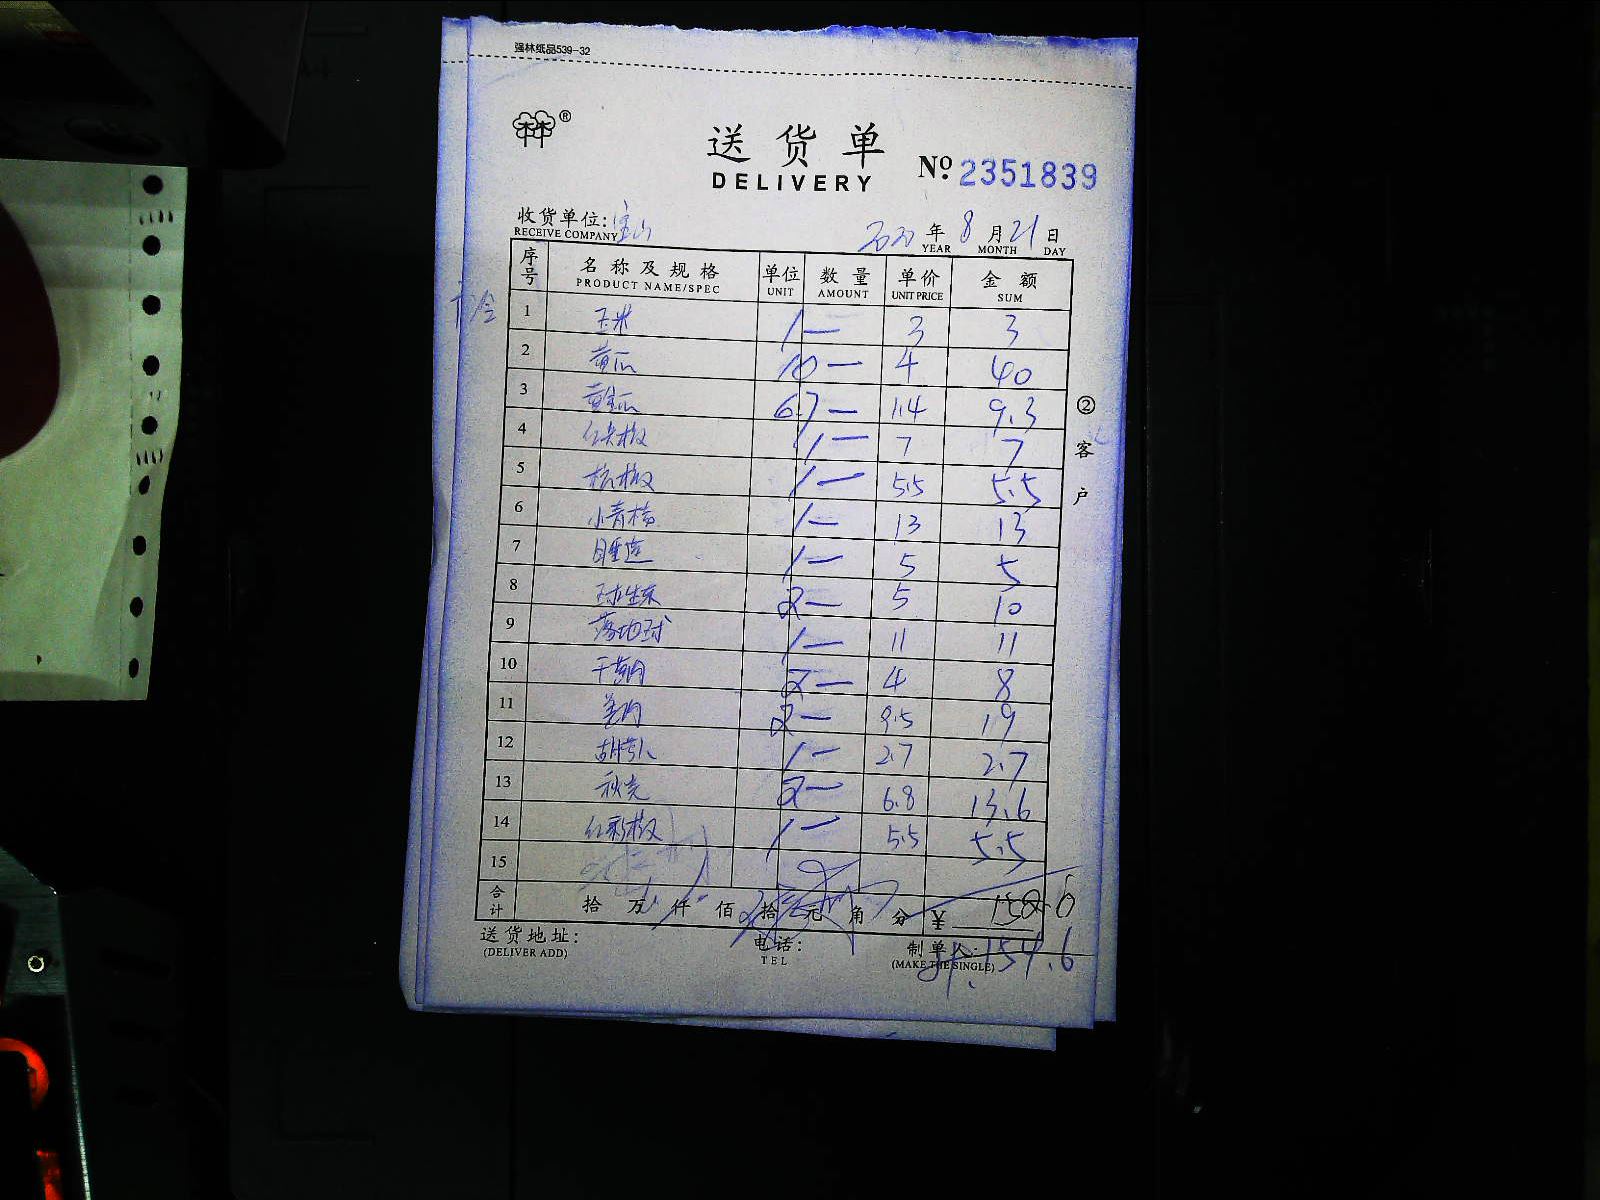 强林纸品539-32
林®
送货单
DELIVERY
Nº 2351839
收货单位:宝山
RECEIVE COMPANY
2020年8月21日
YEAR MONTH DAY
序号 名称及规格 单位 数量 单价 金额
PRODUCT NAME/SPEC UNIT AMOUNT UNIT PRICE SUM
1 玉米 1一 3 3
2 黄瓜 10一 4 40
3 黄金瓜 6.7一 1.4 9.3
4 红尖椒 1一 7 7
5 杭椒 1一 5.5 5.5
6 小青桔 1一 13 13
7 1一 5 5
8 球生菜 2一 5 10
9 落地球 1一 11 11
10 2一 4 8
11 姜肉 2一 9.5 19
12 胡萝卜 1一 2.7 2.7
13 秋葵 2一 6.8 13.6
14 红彩椒 1一 5.5 5.5
15
合计 拾 万 仟 佰 拾 元 角 分 ¥
154.6
送货地址:
(DELIVER ADD)
电话:
TEL
制单人:
(MAKE THE SINGLE)
②客户